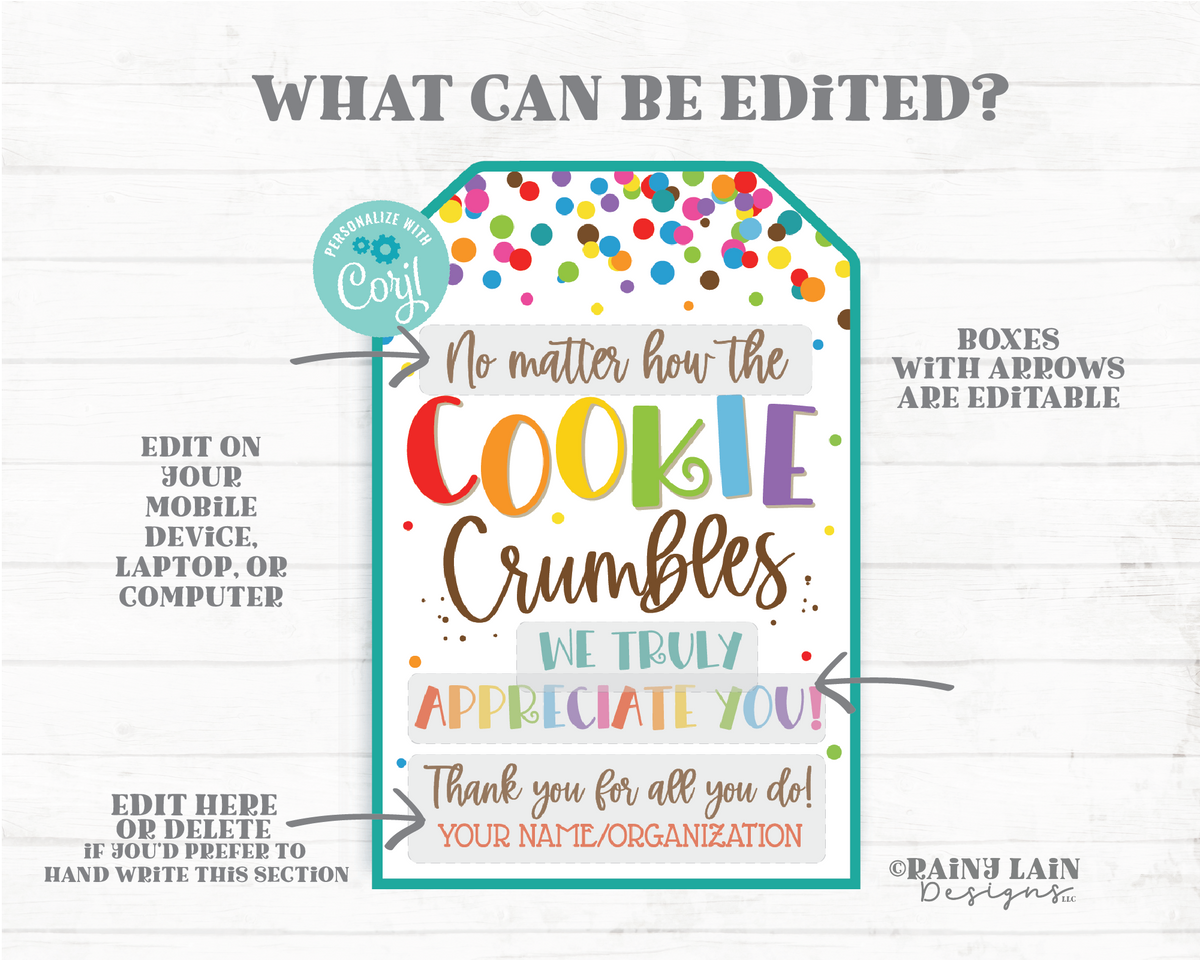 WHAT CAN BE EDiTED?
PERSONALIZE WITH
Corjl
No matter how the
COOKIE
Crumbles
WE TRULY
APPRECIATE YOU!
Thank you for all you do!
YOUR NAME/ORGANIZATION
BOXES
WiTH ARROWS
ARE EDiTABLE
EDIT ON
YOUR
MOBiLE
DEViCE,
LAPTOP, OR
COMPUTER
EDIT HERE
OR DELETE
iF YOU'D PREFER TO
HAND WRiTE THiS SECTiON
©RAiNY LAiN
Designs LLC